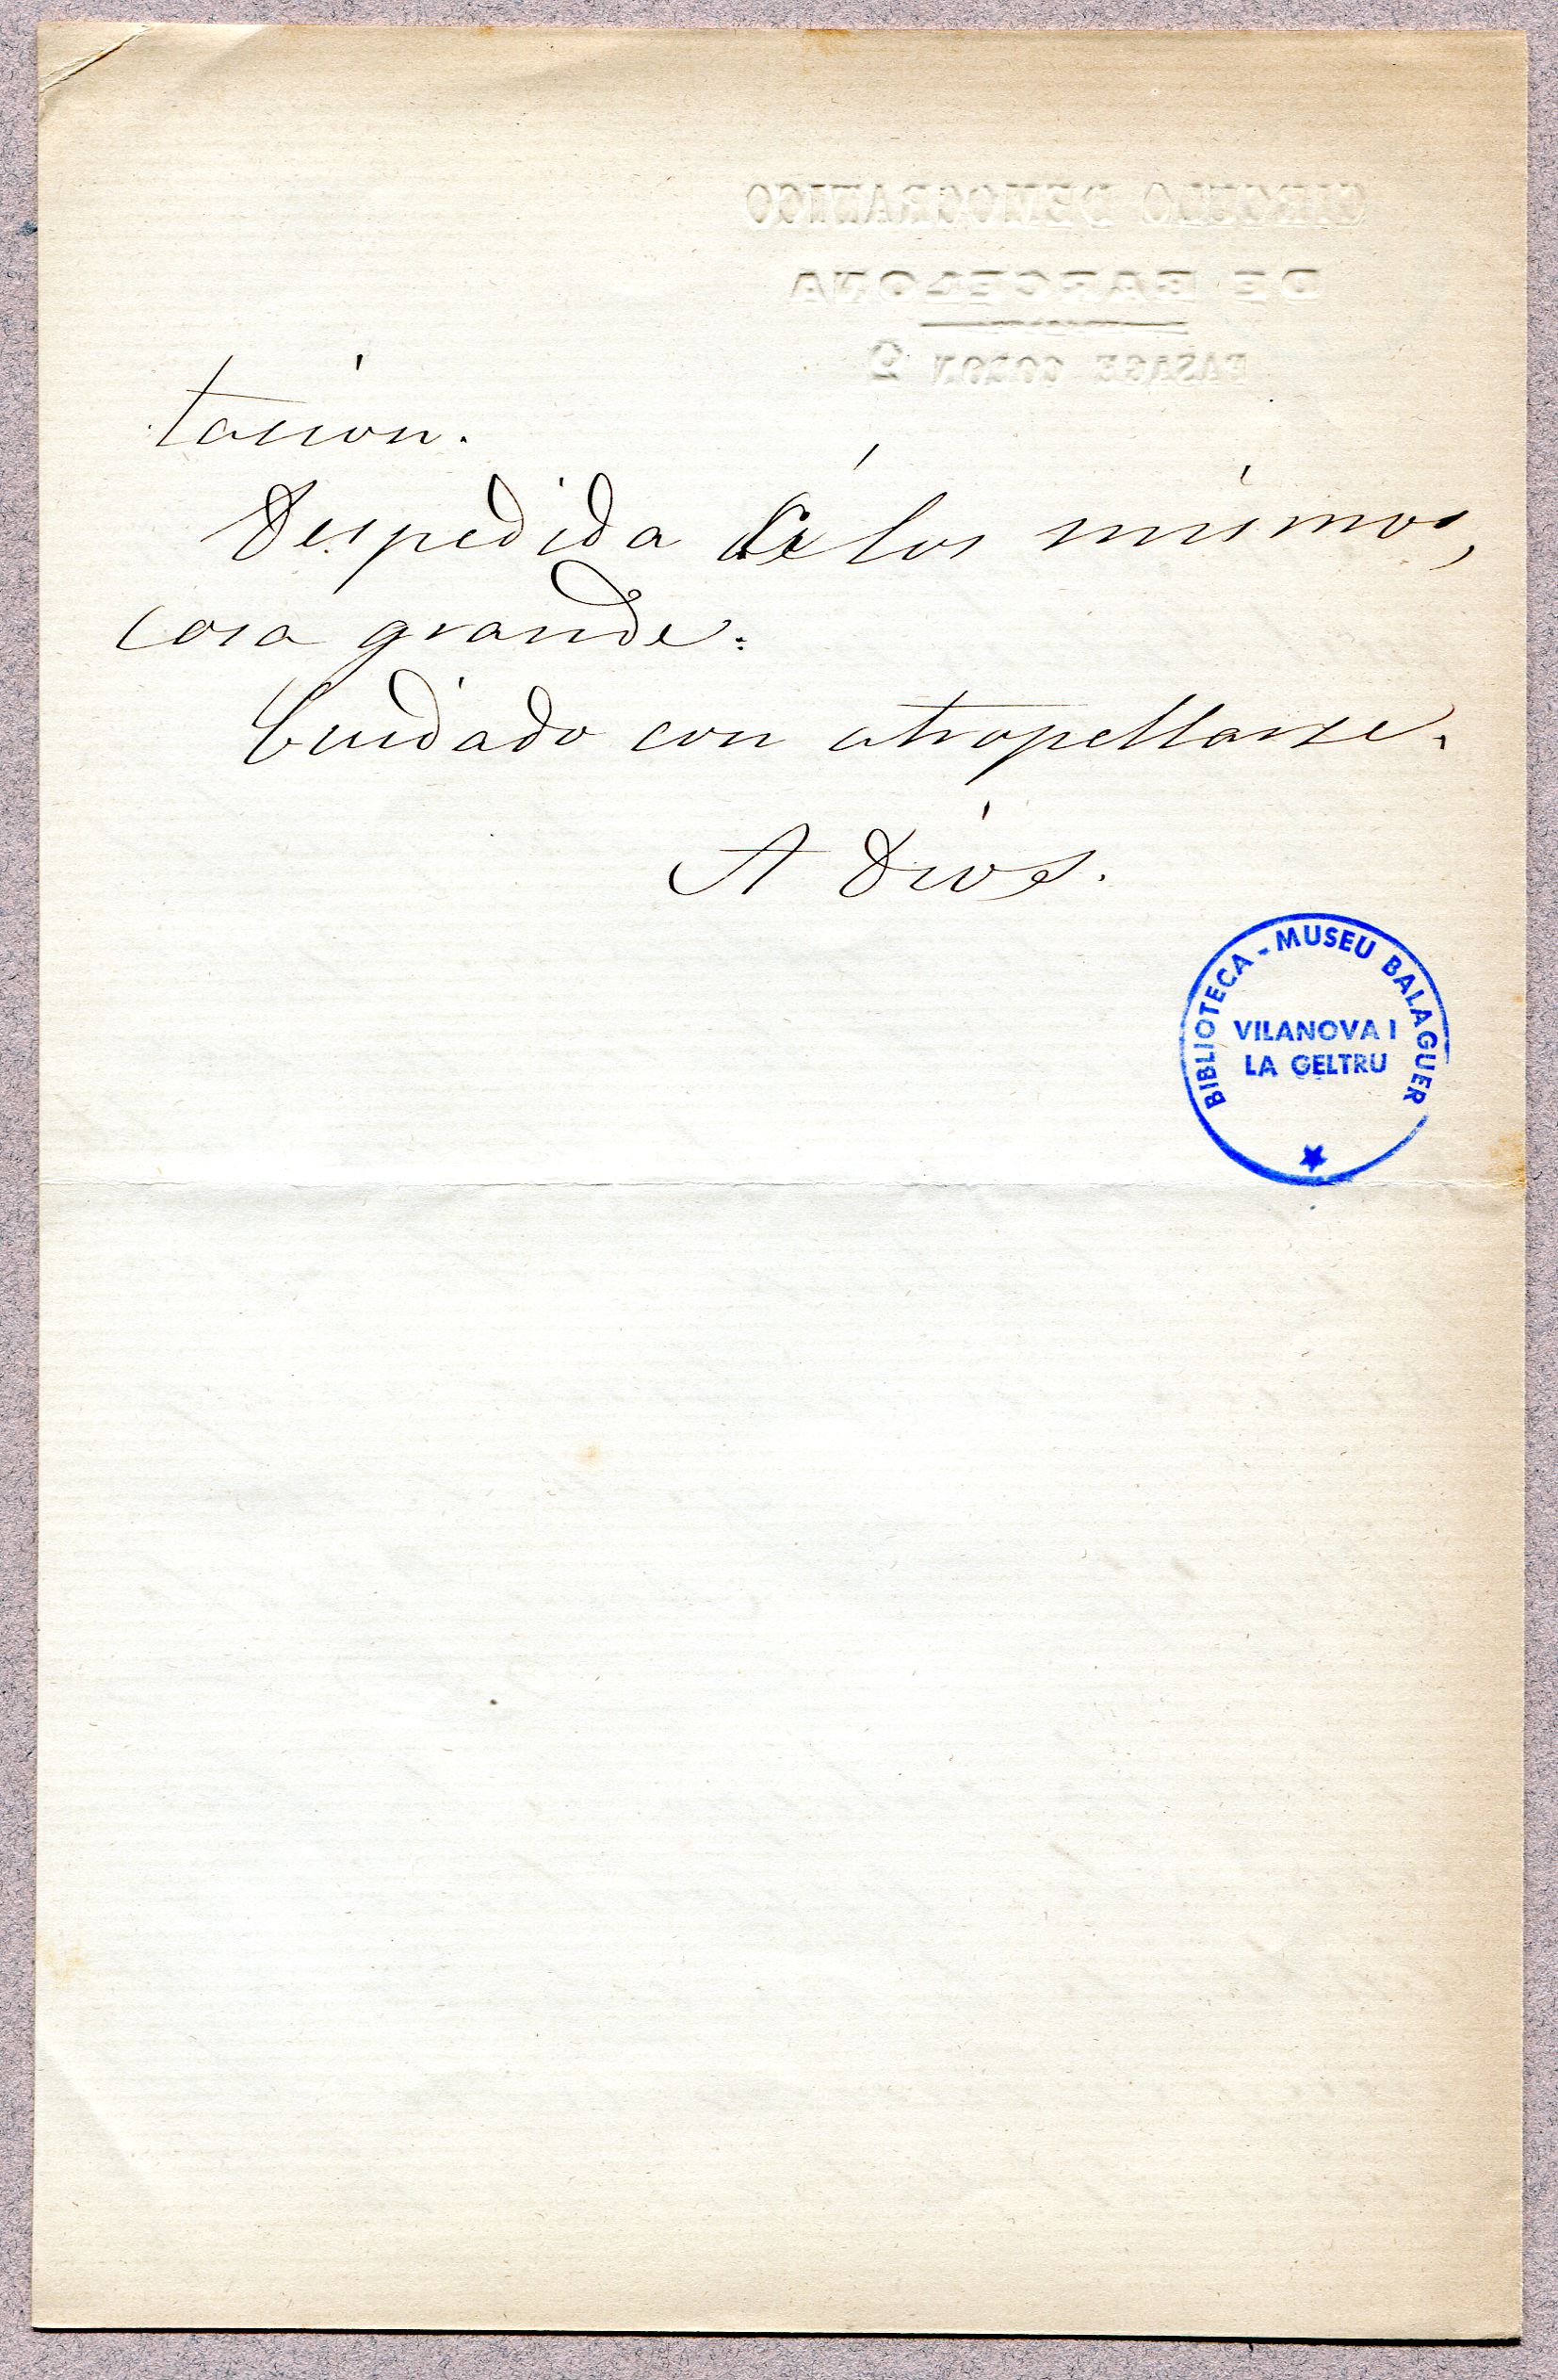 CIRCULO DEMOCRATICO
DE BARCELONA
PASAGE COLON 2
tacion.
Despedida á los mismos,
cosa grande.
Cuidado con atropellarse.
A Dios.
BIBLIOTECA - MUSEU BALAGUER
VILANOVA I
LA GELTRU